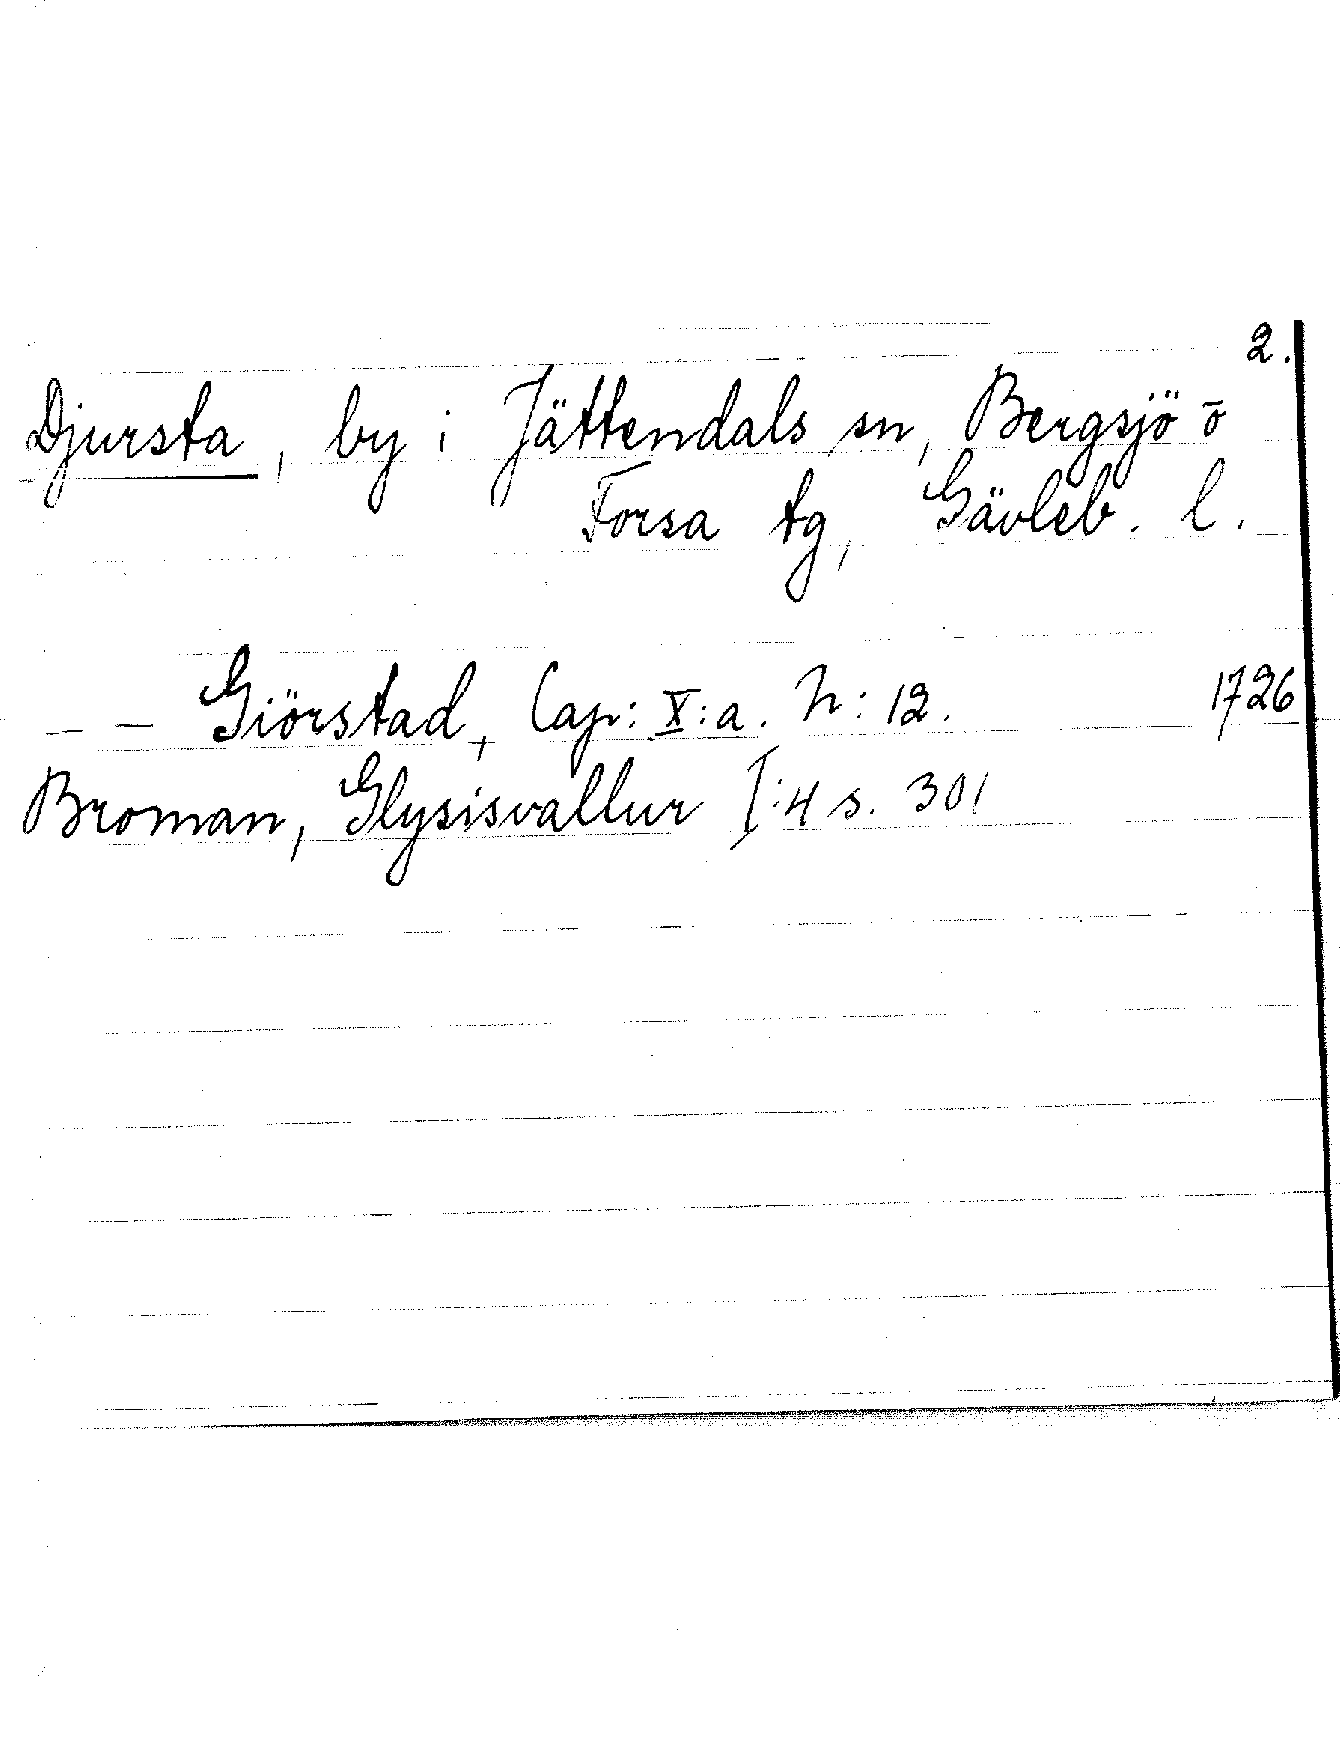 2.
Djursta, by i Jättendals sn, Bergsjö o
Forsa tg, Gävleb. l.
— — Giörstad, Cap: X:a. N: 12. 1726
Broman, Glysisvallur I:4 s. 301